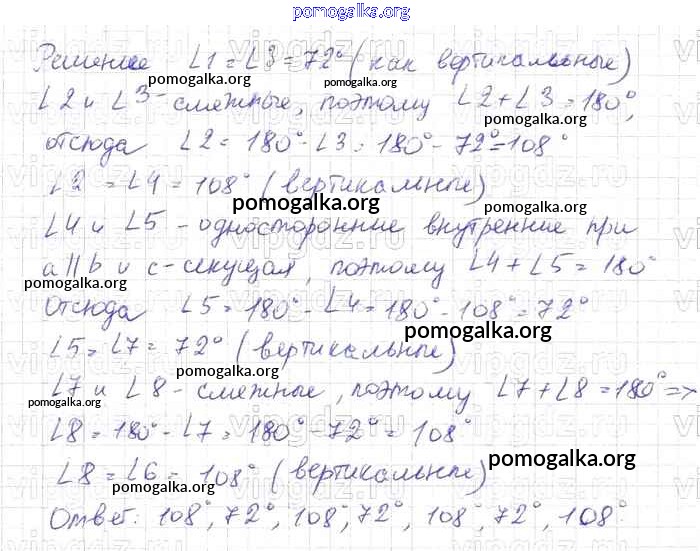 pomogalka.org
Решение ∠1 = ∠3 = 72° (как вертикальные)
pomogalka.org pomogalka.org
∠2 и ∠3 - смежные, поэтому ∠2 + ∠3 = 180°,
pomogalka.org
отсюда ∠2 = 180° - ∠3 = 180° - 72° = 108°
pomogalka.org
∠2 = ∠4 = 108° (вертикальные)
pomogalka.org pomogalka.org
∠4 и ∠5 - односторонние внутренние при
a || b и c - секущая, поэтому ∠4 + ∠5 = 180°
pomogalka.org pomogalka.org
Отсюда ∠5 = 180° - ∠4 = 180° - 108° = 72°
pomogalka.org
∠5 = ∠7 = 72° (вертикальные)
∠7 и ∠8 - смежные, поэтому ∠7 + ∠8 = 180° =>
pomogalka.org
∠8 = 180° - ∠7 = 180° - 72° = 108°
pomogalka.org
∠8 = ∠6 = 108° (вертикальные)
pomogalka.org pomogalka.org
Ответ: 108°, 72°, 108°, 72°, 108°, 72°, 108°